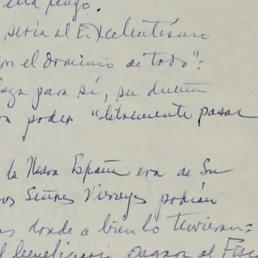 sería al Excelentísimo
on el dominio de todo":
para sí, su dueño
poder "libremente pasar
la Nueva España era de Su
os Señores Virreyes podían
as donde a bien lo tuvieran=
l beneficiario pagar al Fisc